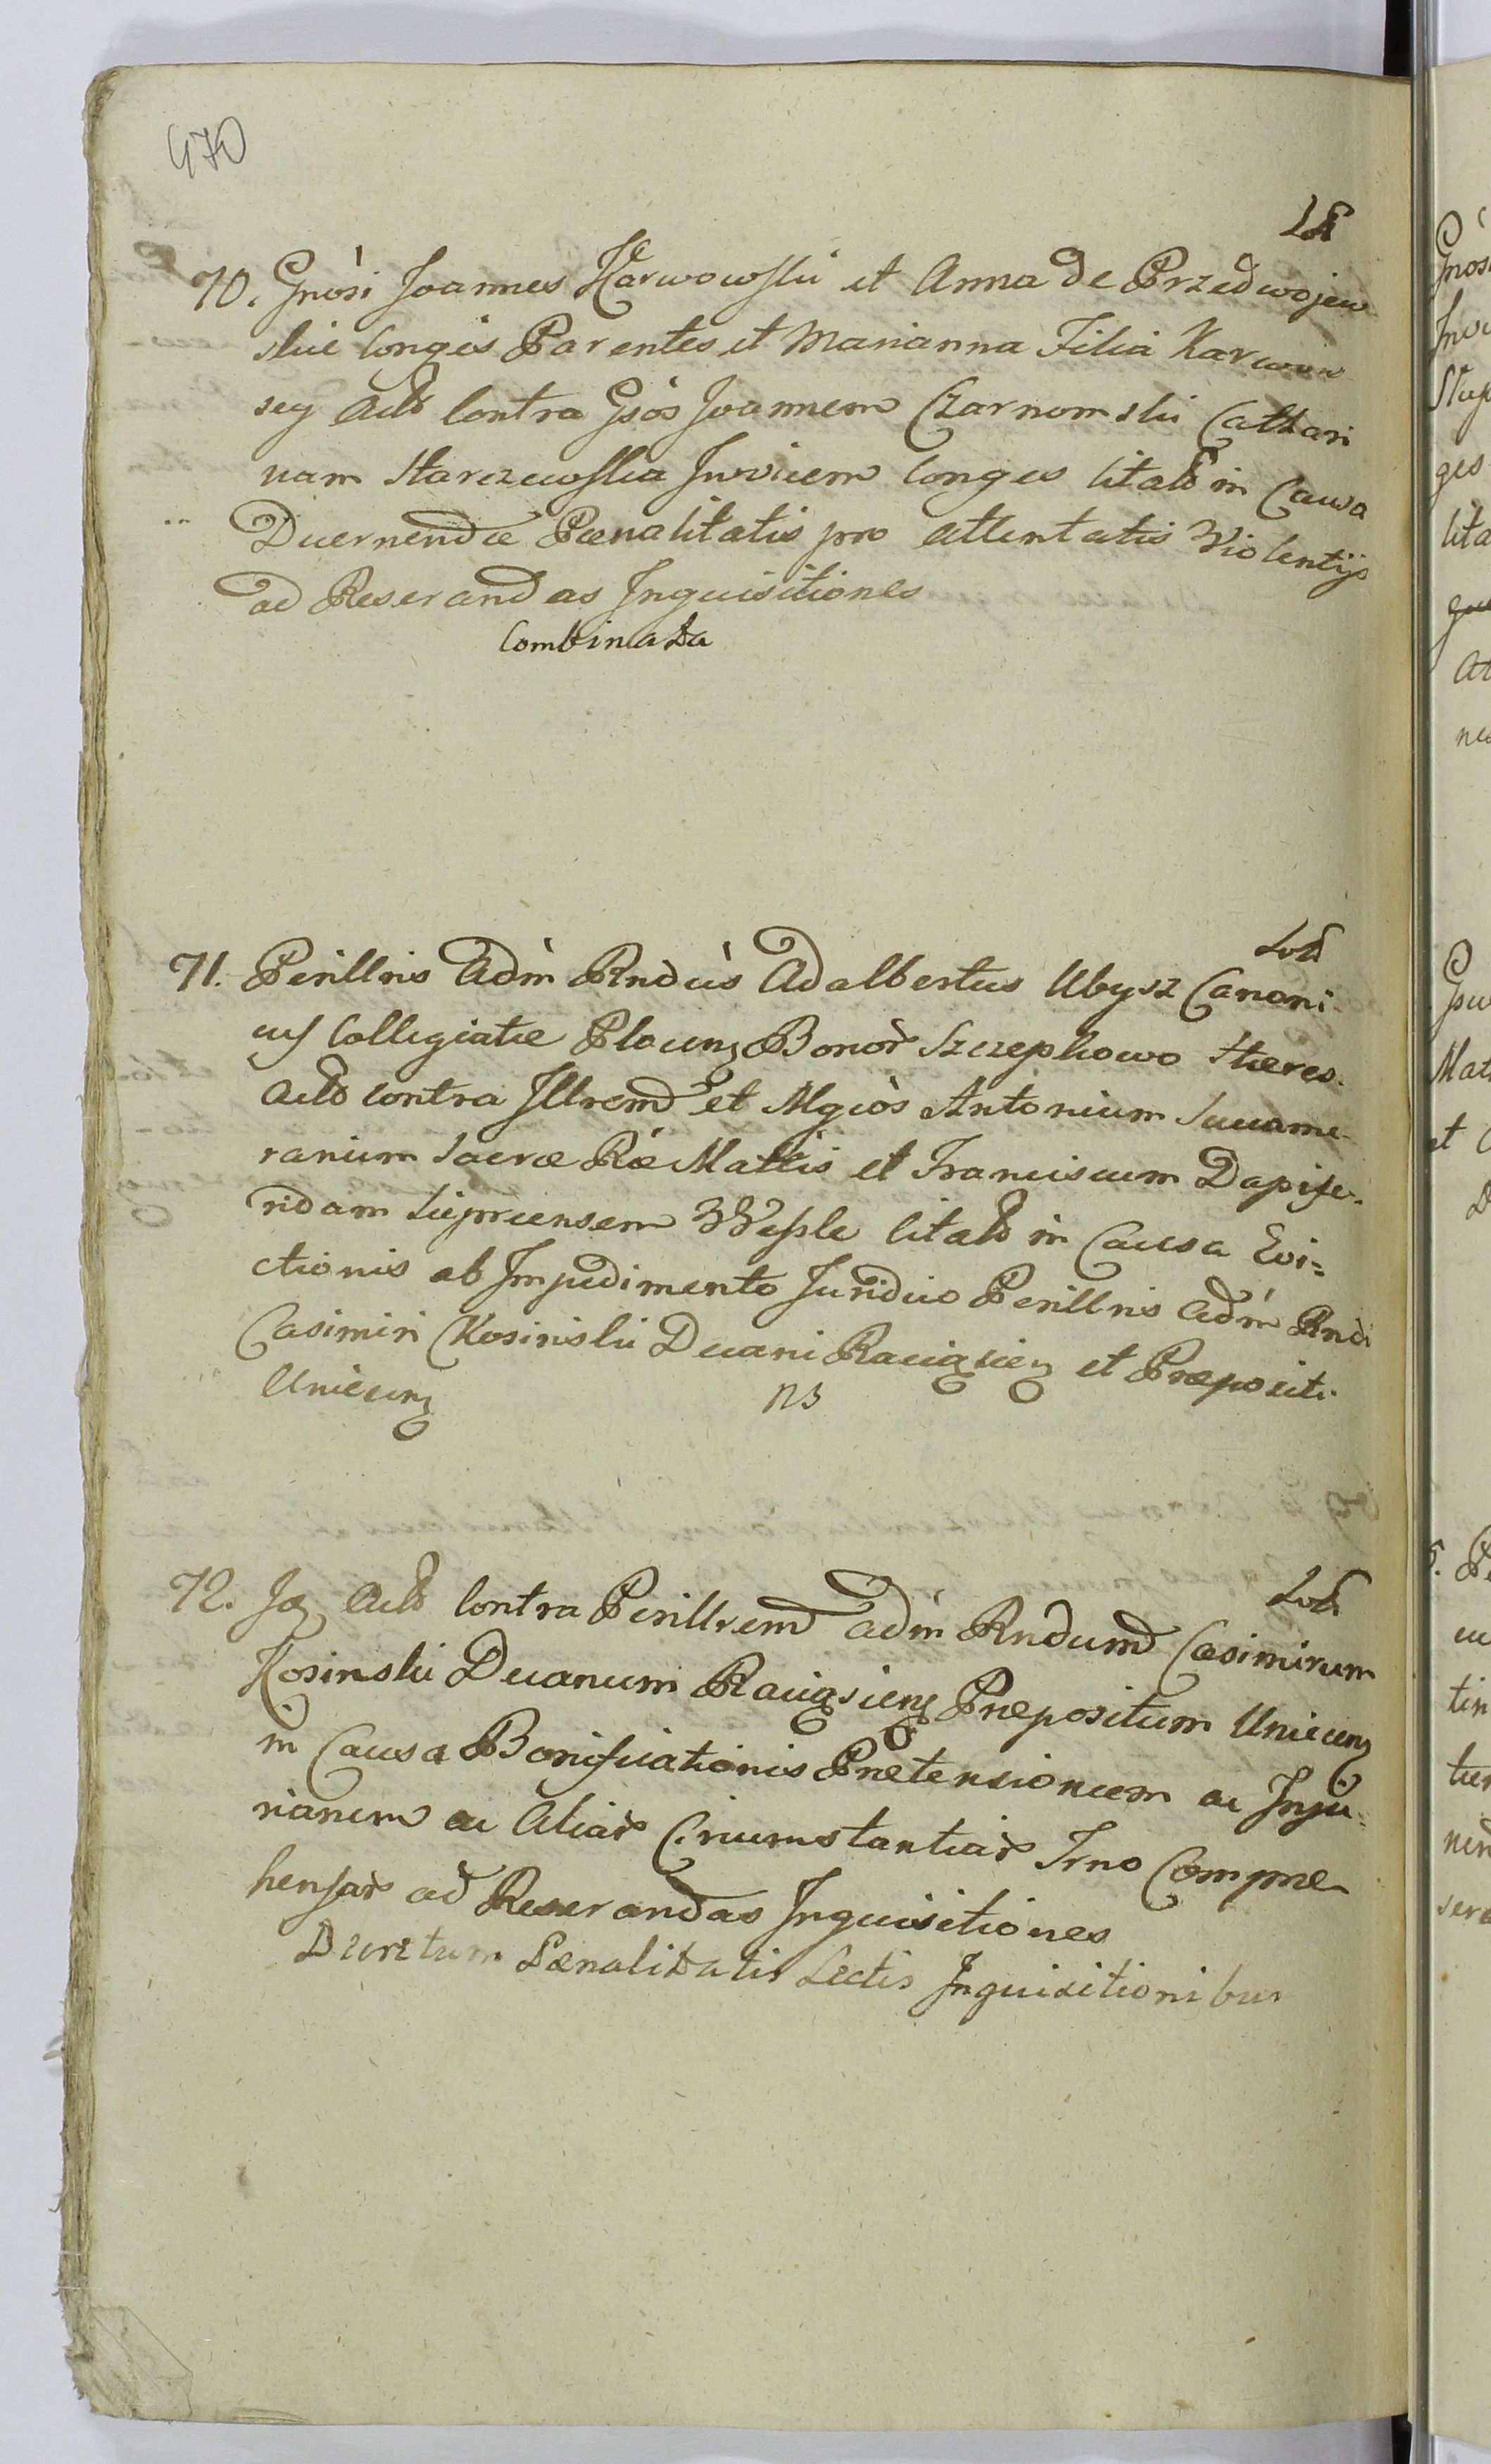 470
70. Gnòsi Joannes Karwowski et Anna de Przedwojew
skie Conges Parentes et Marianna Filia Karwow
scy Actò Contra Gsòs Joannem Czarnomski Cathari
nam Starczewska Invicem Conges Citatò in Causa
Decernendæ Pænalitatis pro Attentatis Violentijs
ad Reserandas Inquisitiones
Combinata
71. Perillris Adm̀ Rndùs Adalbertus Ubysz Canoni
cus Collegiatæ Plocens Bonor Szczepkowo Hæres
Actò contra Illrem et Mgcòs Antonium Succame
rarium Sacræ Ræ Mattis et Franciscum Dapife
ridam Lieprcensem Wessle Citatò in Causa Evi=
ctionis ab Impedimento Juridico Perillris Adm̀ Rndi
Casimiri Kosinski Decani Raciąscien et Præpositi
Uniecens
NS
72. Jd Actò Contra Perillrem Adm̀ Rndum Casimirum
Kosinski Decanum Raciąsiens Præpositum Uniecens
in Causa Bonificationis Prætensionum ac Inju
riarum ac Aliar Circumstantiar Trno Compre
hensar ad Reserandas Inquisitiones
Decretum Pænalitatis Lectis Inquisitionibus